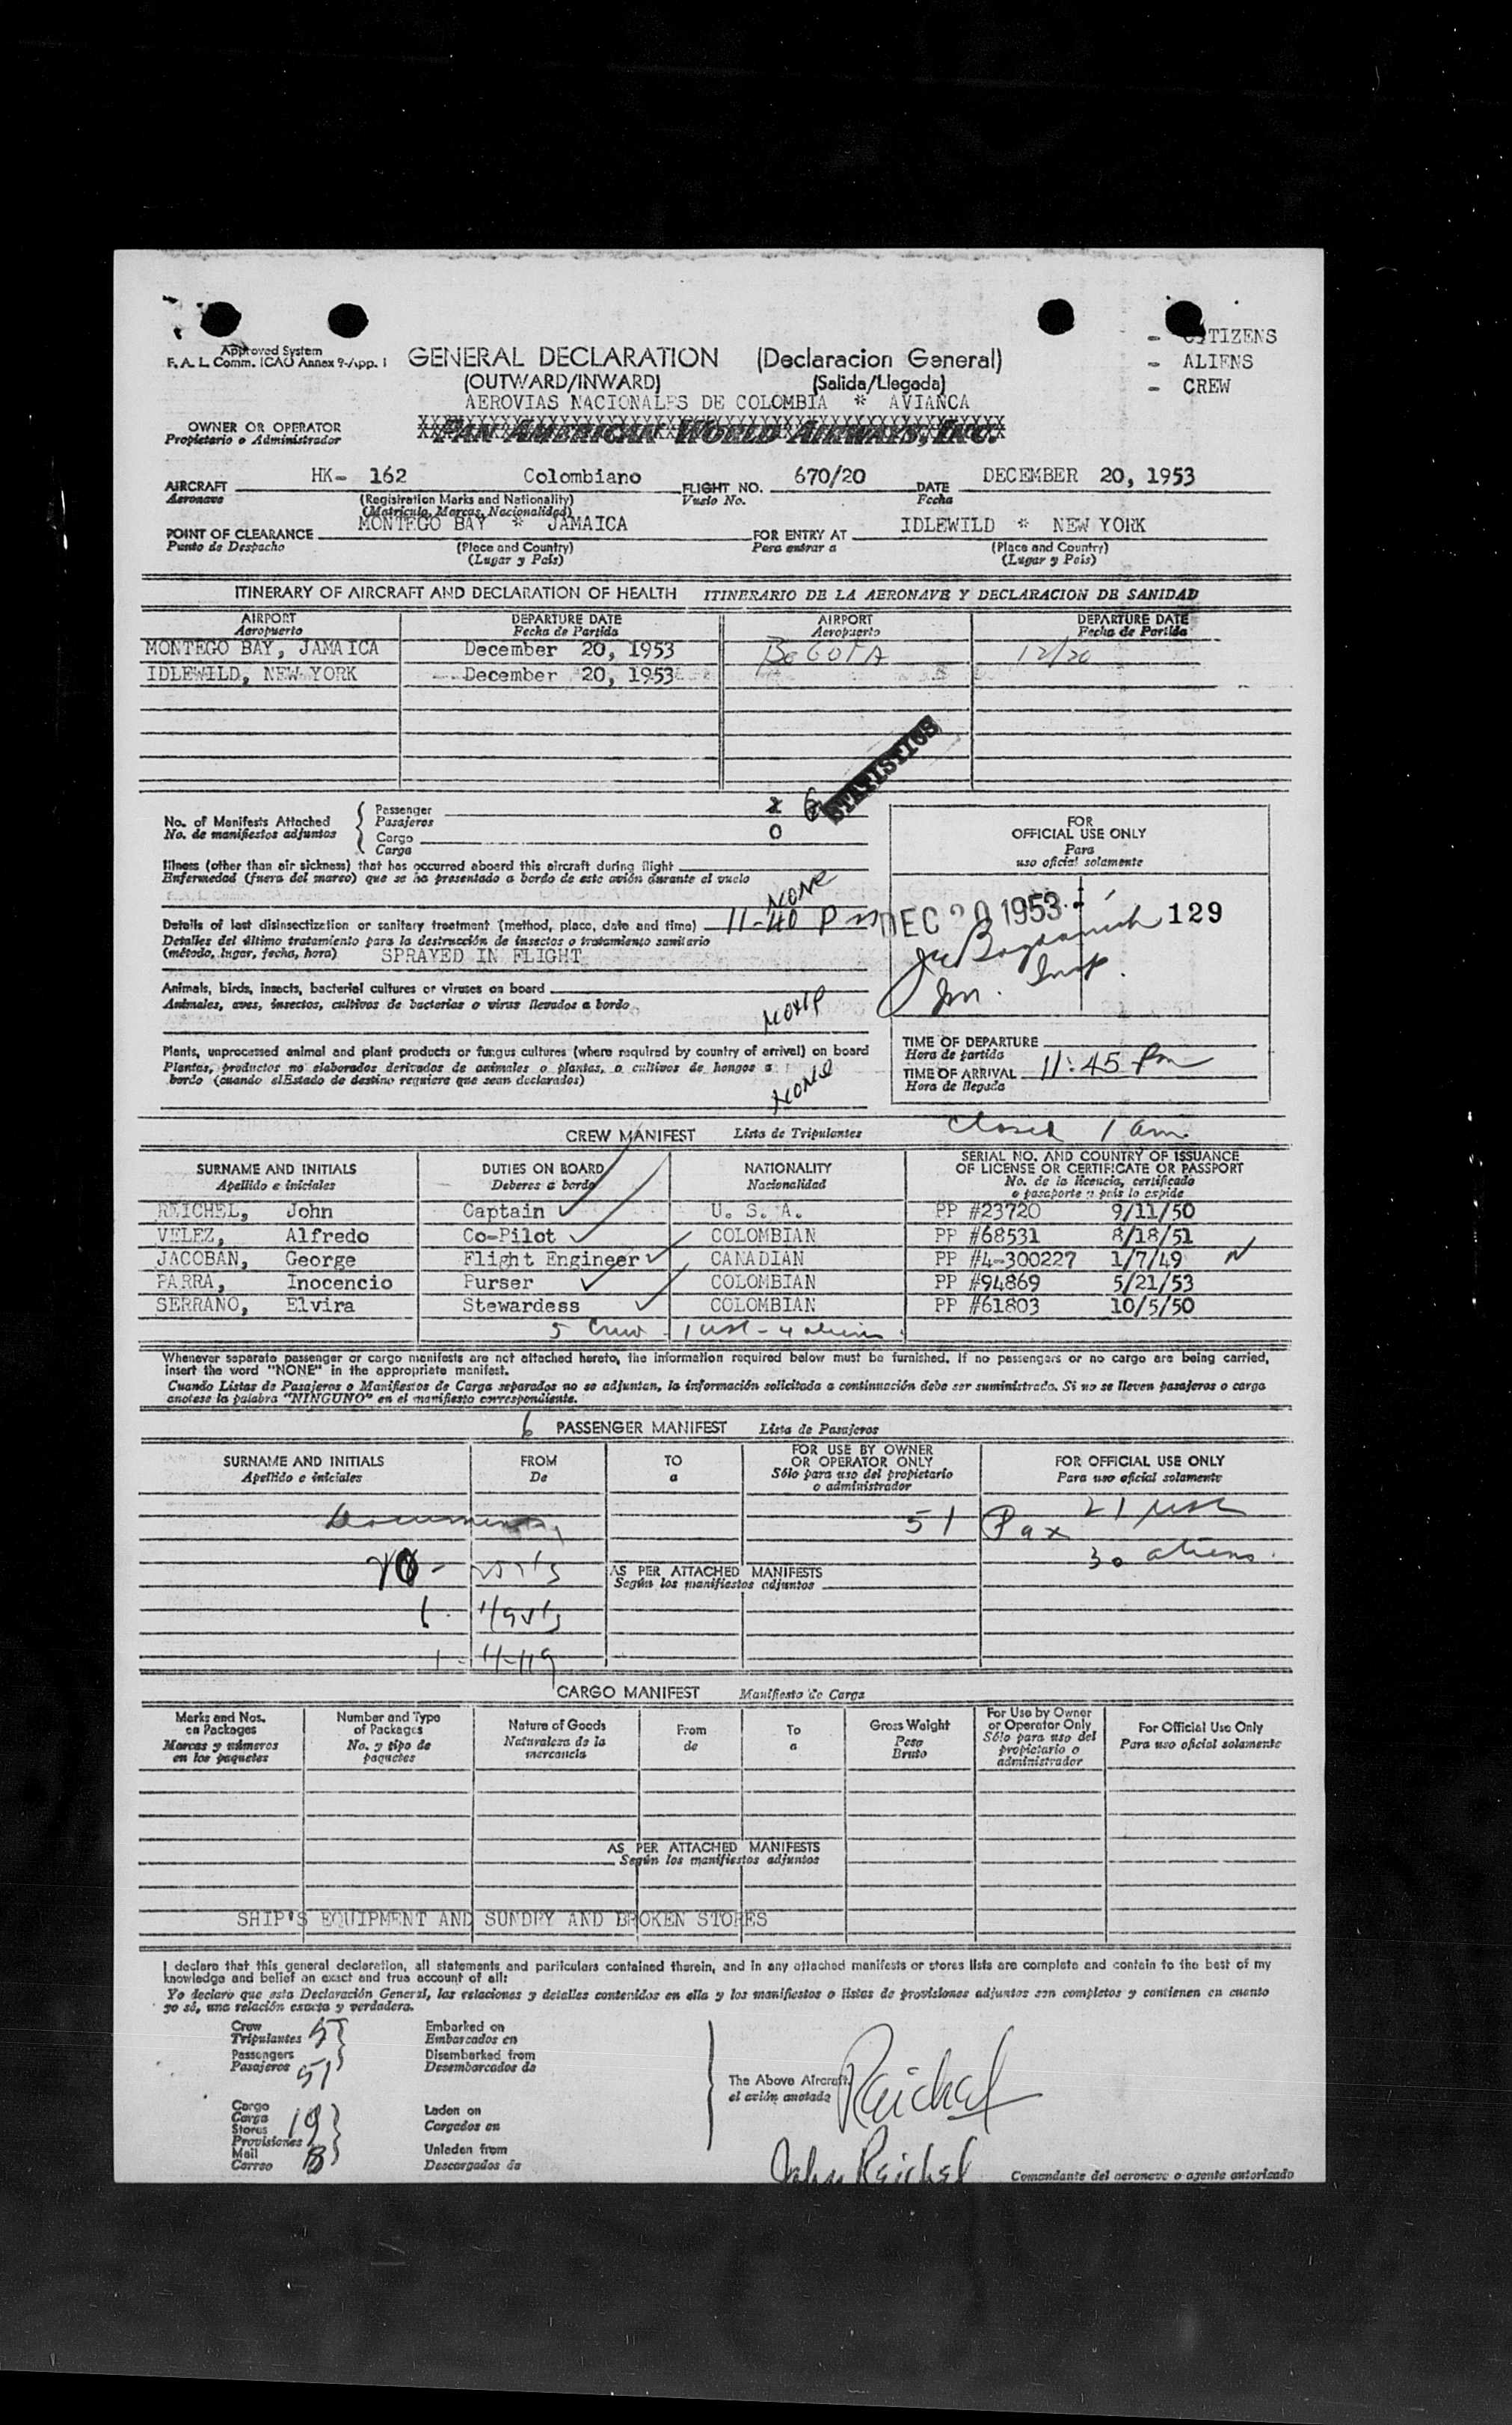 Approved System
F. A. L. Comm. ICAO Annex 9-App. 1
GENERAL DECLARATION (Declaracion General)
(OUTWARD/INWARD) (Salida/Llegada)
- CITIZENS
- ALIENS
- CREW
AEROVIAS NACIONALES DE COLOMBIA * AVIANCA
OWNER OR OPERATOR
Propietario o Administrador
PAN AMERICAN WORLD AIRWAYS, INC.
AIRCRAFT HK- 162 Colombiano FLIGHT NO. 670/20 DATE DECEMBER 20, 1953
Aeronave (Registration Marks and Nationality) Vuelo No. Fecha
(Matricula, Marcas, Nacionalidad)
POINT OF CLEARANCE MONTEGO BAY * JAMAICA FOR ENTRY AT IDLEWILD * NEW YORK
Punto de Despacho (Place and Country) Para entrar a (Place and Country)
(Lugar y País) (Lugar y País)
ITINERARY OF AIRCRAFT AND DECLARATION OF HEALTH ITINERARIO DE LA AERONAVE Y DECLARACION DE SANIDAD
AIRPORT DEPARTURE DATE AIRPORT DEPARTURE DATE
Aeropuerto Fecha de Partida Aeropuerto Fecha de Partida
MONTEGO BAY, JAMAICA December 20, 1953 BOGOTA 12/20
IDLEWILD, NEW YORK December 20, 1953
STATISTICS
No. of Manifests Attached
No. de manifiestos adjuntos
Passenger x 6
Pasajeros
Cargo 0
Carga
FOR
OFFICIAL USE ONLY
Para
uso oficial solamente
Illness (other than air sickness) that has occurred aboard this aircraft during flight
Enfermedad (fuera del mareo) que se ha presentado a bordo de este avión durante el vuelo
NONE
Details of last disinsectization or sanitary treatment (method, place, date and time) 11-40 Pm
Detalles del último tratamiento para la destrucción de insectos o tratamiento sanitario
(método, lugar, fecha, hora) SPRAYED IN FLIGHT
DEC 20 1953 129
Im. Insp.
Animals, birds, insects, bacterial cultures or viruses on board
Animales, aves, insectos, cultivos de bacterias o virus llevados a bordo
NONE
Plants, unprocessed animal and plant products or fungus cultures (where required by country of arrival) on board
Plantas, productos no elaborados derivados de animales o plantas, o cultivos de hongos a
bordo (cuando el Estado de destino requiere que sean declarados)
NONE
TIME OF DEPARTURE
Hora de partida
TIME OF ARRIVAL 11:45 Pm
Hora de llegada
Closed 1 am.
CREW MANIFEST Lista de Tripulantes
SURNAME AND INITIALS DUTIES ON BOARD NATIONALITY SERIAL NO. AND COUNTRY OF ISSUANCE
OF LICENSE OR CERTIFICATE OR PASSPORT
Apellido e iniciales Deberes a bordo Nacionalidad No. de la licencia, certificado
o pasaporte y país lo expide
REICHEL, John Captain U. S. A. PP #23720 9/11/50
VELEZ, Alfredo Co-Pilot COLOMBIAN PP #68531 8/18/51
JACOBAN, George Flight Engineer CANADIAN PP #4-300227 1/7/49
PARRA, Inocencio Purser COLOMBIAN PP #94869 5/21/53
SERRANO, Elvira Stewardess COLOMBIAN PP #61803 10/5/50
5 Crew - 1 usc - 4 aliens
Whenever separate passenger or cargo manifests are not attached hereto, the information required below must be furnished. If no passengers or no cargo are being carried,
insert the word "NONE" in the appropriate manifest.
Cuando Listas de Pasajeros o Manifiestos de Carga separados no se adjuntan, la información solicitada a continuación debe ser suministrada. Si no se lleven pasajeros o carga
anotese la palabra "NINGUNO" en el manifiesto correspondiente.
6 PASSENGER MANIFEST Lista de Pasajeros
SURNAME AND INITIALS FROM TO FOR USE BY OWNER
OR OPERATOR ONLY
FOR OFFICIAL USE ONLY
Apellido e iniciales De a Sólo para uso del propietario
o administrador
Para uso oficial solamente
Documents 51 Pax 21 usc
30 aliens.
AS PER ATTACHED MANIFESTS
Según los manifiestos adjuntos
CARGO MANIFEST Manifiesto de Carga
Marks and Nos.
on Packages
Marcas y números
en los paquetes
Number and Type
of Packages
No. y tipo de
paquetes
Nature of Goods
Naturaleza de la
mercancia
From
de
To
a
Gross Weight
Peso
Bruto
For Use by Owner
or Operator Only
Sólo para uso del
propietario o
administrador
For Official Use Only
Para uso oficial solamente
AS PER ATTACHED MANIFESTS
Según los manifiestos adjuntos
SHIP'S EQUIPMENT AND SUNDRY AND BROKEN STORES
I declare that this general declaration, all statements and particulars contained therein, and in any attached manifests or stores lists are complete and contain to the best of my
knowledge and belief an exact and true account of all:
Yo declaro que esta Declaración General, las relaciones y detalles contenidos en ella y los manifiestos o listas de provisiones adjuntos son completos y contienen en cuanto
yo sé, una relación exacta y verdadera.
Crew Embarked on
Tripulantes 5 Embarcados en
Passengers Disembarked from
Pasajeros 51 Desembarcados de
The Above Aircraft
el avión anotado
Reichel
Cargo Laden on
Carga Cargados en
Stores 19
Provisiones
Mail Unladen from
Correo Descargados de
John Reichel
Comandante del aeronave o agente autorizado